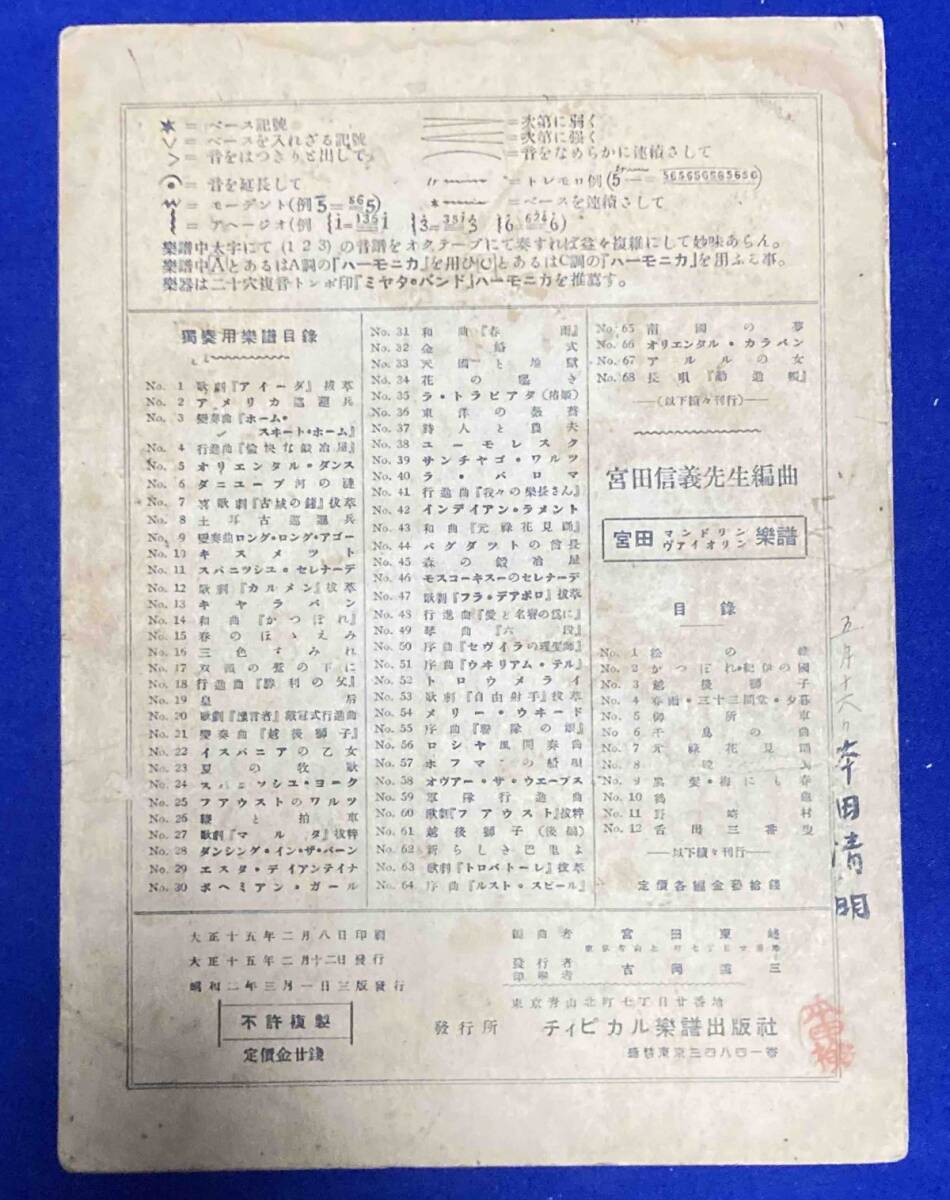 ✶ = ベース記號
∨ = ベースを入れざる記號
＞ = 音をはつきりと出して
= 音を延長して
= モーデント(例
= アヘージオ(例
=次第に弱く
=次第に强く
=音をなめらかに連續さして
=トレモロ例(
=ベースを連續さして
樂譜中太字にて(1 2 3)の音譜をオクターブにて奏すれば益々複雜にして妙味あらん。
樂譜中AとあるはА調の『ハーモニカ』を用ひCとあるはC調の『ハーモニカ』を用ふる事。
樂器は二十穴複音トンボ印『ミヤタ・バンド』ハーモニカを推薦す。
獨奏用樂譜目錄
No. 1 歌劇『アイーダ』拔萃
No. 2 アメリカ巡邏兵
No. 3 變奏曲『ホーム・
スヰート・ホーム』
No. 4 行進曲『愉快な鍛冶屋』
No. 5 オリエンタル・ダンス
No. 6 ダニユーブ河の漣
No. 7 喜歌劇『古城の鐘』拔萃
No. 8 土耳古巡邏兵
No. 9 變奏曲ロング・ロング・アゴー
No. 10 キスメツト
No. 11 スパニツシユ・セレナーデ
No. 12 歌劇『カルメン』拔萃
No. 13 キャラバン
No. 14 和曲『かつぽれ』
No. 15 春のほゝえみ
No. 16 三色すみれ
No. 17 双頭の鷲の下に
No. 18 行進曲『勝利の父』
No. 19 皇后
No. 20 歌劇『豫言者』戴冠式行進曲
No. 21 變奏曲『越後獅子』
No. 22 イスパニアの乙女
No. 23 夏の牧歌
No. 24 スパニツシユ・ヨーク
No. 25 フアウストのワルツ
No. 26 鞭と拍車
No. 27 歌劇『マルタ』拔粹
No. 28 ダンシング・イン・ザ・バーン
No. 29 エスタ・デイアンテイナ
No. 30 ボヘミアン・ガール
No. 31 和曲『春雨』
No. 32 金婚式
No. 33 天國と地獄
No. 34 花の囁き
No. 35 ラ・トラビアタ(椿姬)
No. 36 東洋の薔薇
No. 37 詩人と農夫
No. 38 ユーモレスク
No. 39 サンチヤゴ・ワルツ
No. 40 ラ・パロマ
No. 41 行進曲『我々の樂長さん』
No. 42 インデイアン・ラメント
No. 43 和曲『元祿花見踊』
No. 44 バグダツトの酋長
No. 45 森の鍛冶屋
No. 46 モスコーキスーのセレナーデ
No. 47 歌劇『フラ・デアボロ』拔萃
No. 48 行進曲『愛と名譽の爲に』
No. 49 琴曲『六段』
No. 50 序曲『セヴイラの理髮師』
No. 51 序曲『ウヰリアム・テル』
No. 52 トロウメライ
No. 53 歌劇『自由射手』拔萃
No. 54 メリー・ウヰード
No. 55 序曲『聯隊の娘』
No. 56 ロシヤ風間奏曲
No. 57 ホフマンの船唄
No. 58 オヴアー・ザ・ウエーブス
No. 59 軍隊行進曲
No. 60 歌劇『フアウスト』拔粹
No. 61 越後獅子(後編)
No. 62 新らしき巴里よ
No. 63 歌劇『トロバトーレ』拔萃
No. 64 序曲『ルスト・スピール』
No. 65 南國の夢
No. 66 オリエンタル・カラバン
No. 67 アルルの女
No. 68 長唄『勸進帳』
——(以下續々刊行)——
宮田信義先生編曲
宮田 マンドリン ヴァイオリン 樂譜
目錄
No. 1 松の綠
No. 2 かつぽれ・紀伊の國
No. 3 越後獅子
No. 4 春雨・三十三間堂・夕暮
No. 5 御所車
No. 6 千鳥の曲
No. 7 元祿花見踊
No. 8
No. 9 黑髮・梅にも春
No. 10 鶴龜
No. 11 野崎村
No. 12 舌出三番叟
——以下續々刊行——
定價各編金壹拾錢
五年十六
本田清明
大正十五年二月八日印刷
大正十五年二月十二日發行
昭和二年三月一日三版發行
不許複製
定價金廿錢
編曲者 宮田東峰
發行者
印刷者 吉岡義三
東京靑山北町七丁目廿番地
發行所 ティピカル樂譜出版社
振替東京三四八四一番